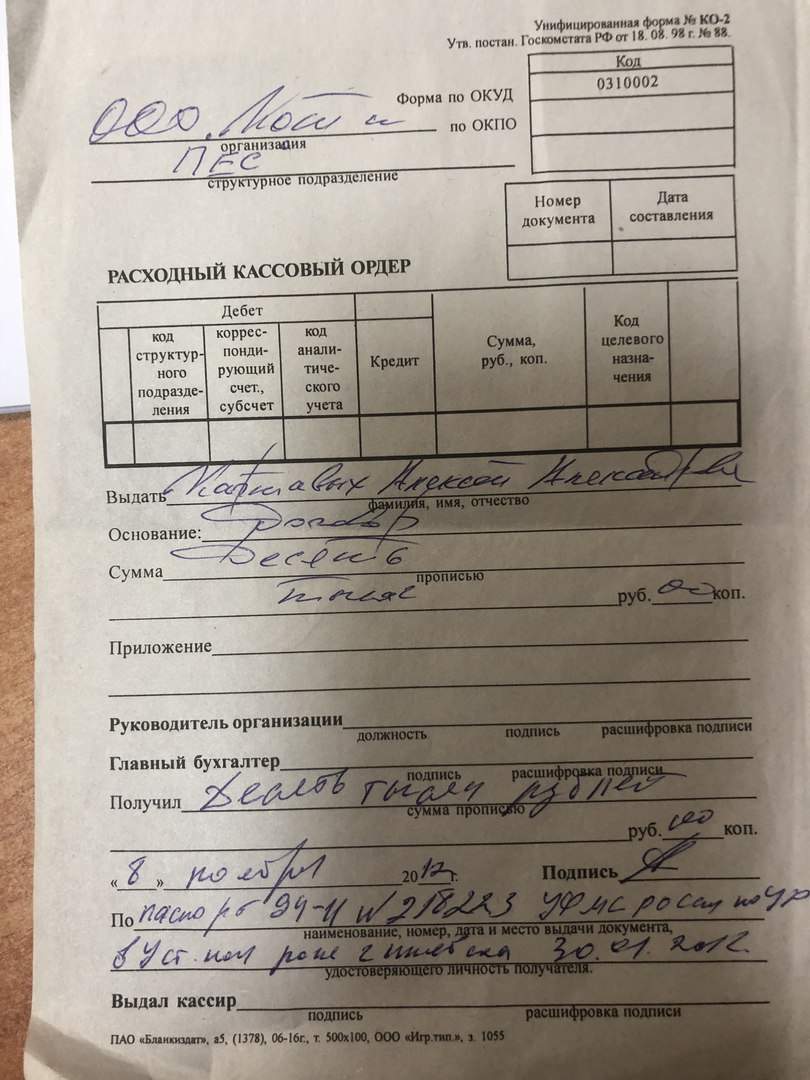 Унифицированная форма № КО-2
Утв. постан. Госкомстата РФ от 18. 08. 98 г. № 88.
Код
Форма по ОКУД 0310002
ООО по ОКПО
организация
ПЕС
структурное подразделение
Номер документа Дата составления
РАСХОДНЫЙ КАССОВЫЙ ОРДЕР
Дебет
код структур-ного подразде-ления коррес-понди-рующий счет., субсчет код анали-тиче-ского учета Кредит Сумма, руб., коп. Код целевого назна-чения
Выдать Картавых Алексей Александрович
фамилия, имя, отчество
Основание: Договор
Сумма Десять
прописью
тысяч руб. 00 коп.
Приложение
Руководитель организации
должность подпись расшифровка подписи
Главный бухгалтер
подпись расшифровка подписи
Получил Десять тысяч рублей
сумма прописью
руб. 00 коп.
« 8 » ноября 2017 г. Подпись
По паспорт 94-11 № 218223 УФМС россии по УР
наименование, номер, дата и место выдачи документа,
в Уст. ном г ижевска 30.01.2012
удостоверяющего личность получателя.
Выдал кассир
подпись расшифровка подписи
ПАО «Бланкиздат», а5, (1378), 06-16г., т. 500х100, ООО «Игр.тип.», з. 1055